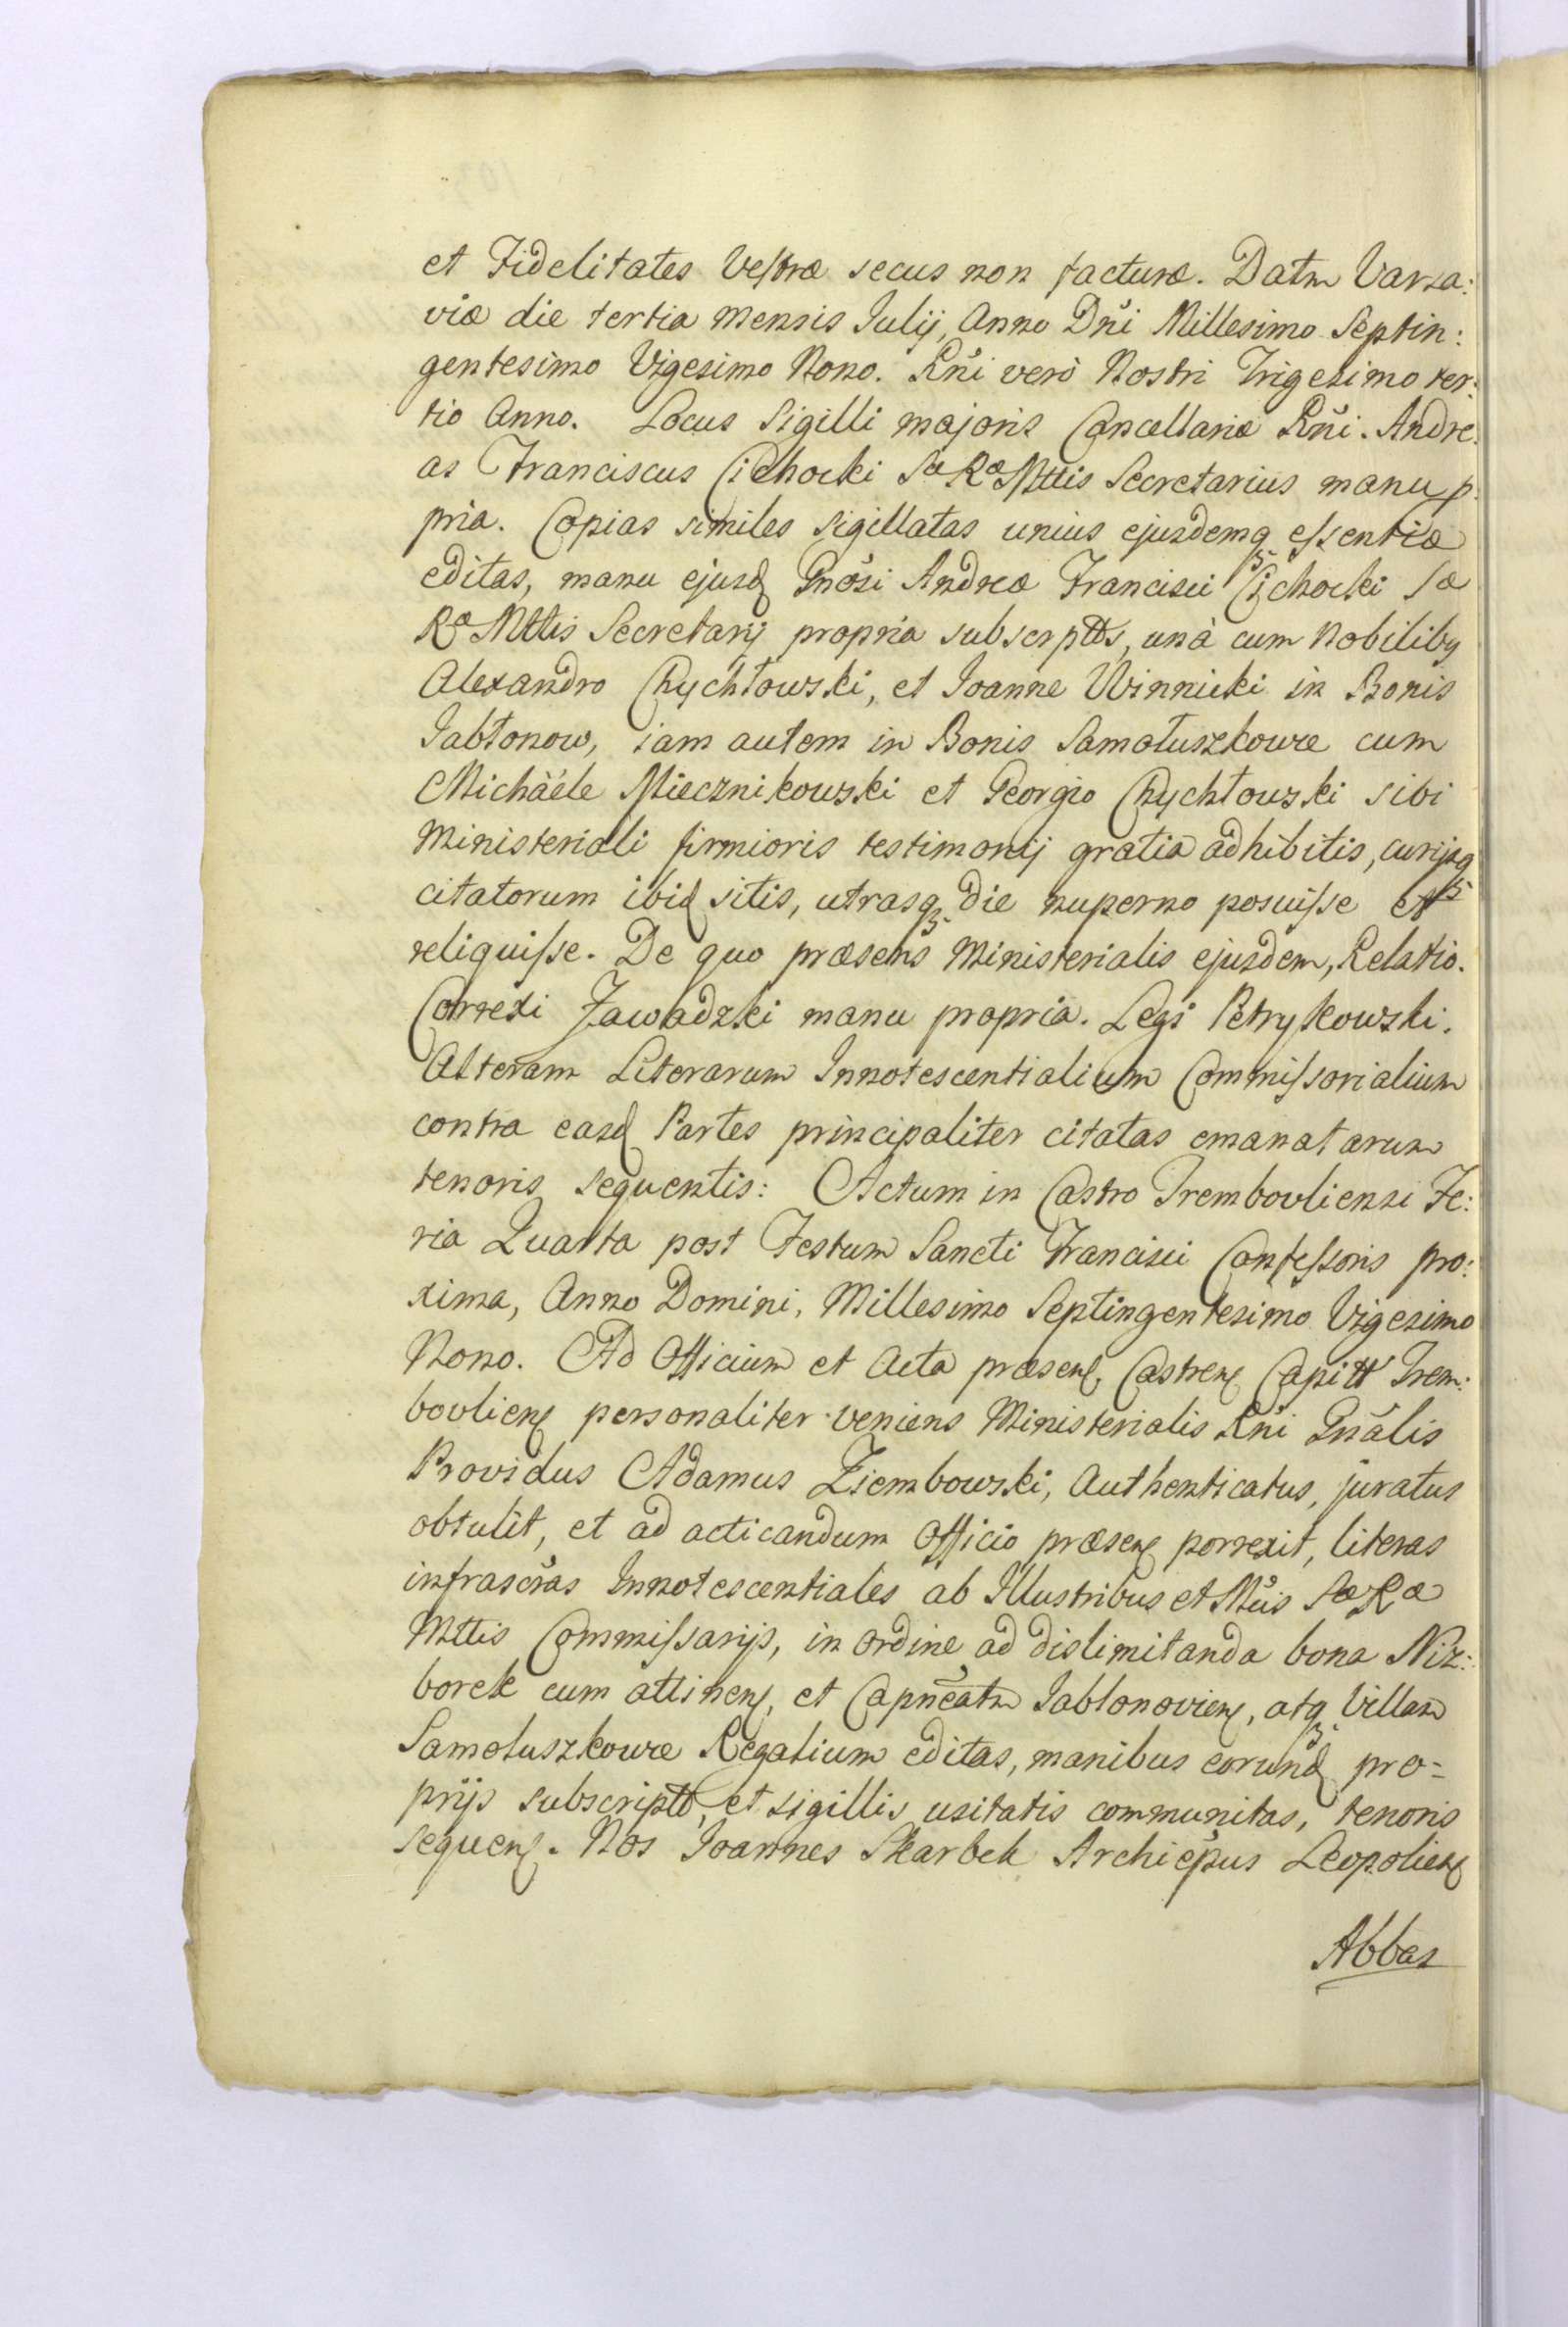 et Fidelitates Vestræ secus non facturæ. Datm Varsa:
viæ die tertia mensis Julij, Anno Dñi Millesimo Septin:
gentesimo Vigesimo Nono. Rñi verò Nostri Trigesimo ter:
tio Anno. Locus Sigilli majoris Cancellariæ Rñi. Andre:
as Franciscus Cichocki Sæ Ræ Mttis Secretarius manu p:
pria. Copias similes sigillatas unius ejusdemq essentiæ
editas, manu ejusd Gnosi Andreæ Francisci Cichocki Sæ
Ræ Mttis Secretarij propria subscrptts, unà cum Nobiliby
Alexandro Chychłowski, et Joanne Winnicki in Bonis
Jabłonow, iam autem in Bonis Samołuszkowce cum
Michäele Miecznikowski et Georgio Chychłowski sibi
Ministeriali firmioris testimonij gratia adhibitis, curijsq
citatorum ibid sitis, utrasq die nuperno posuisse et
reliquisse. De quo præsens Ministerialis ejusdem, Relatio.
Correxi Zawadzki manu propria. Legi Petrykowski.
Alteram Literarum Innotescentialium Commissorialium
contra easd Partes principaliter citatas emanatarum
tenoris sequentis: Actum in Castro Trembovliensi Fe:
ria Quarta post Festum Sancti Francisci Confessoris pro:
xima, Anno Domini, Millesimo Septingentesimo Vigesimo
Nono. Ad Officium et Acta præsen, Castren Capitt Trem:
bovlien personaliter veniens Ministerialis Rñi Gnãlis
Providus Adamus Ziembowski, Authenticatus, juratus
obtulit, et ad acticandum Officio præsen porrexit, literas
infrascras Innotescentiales ab Illustribus et Mcis Sæ Ræ
Mttis Commissarijs, in ordine ad dislimitanda bona Niz:
borek cum attinen, et Capneatm Jablonovien, atq Villam
Samołuszkowce Regalium editas, manibus eorund pro=
prijs subscriptt, et sigillis usitatis communitas, tenoris
sequen. Nos Joannes Skarbek Archiepus Leopolien
Abbas